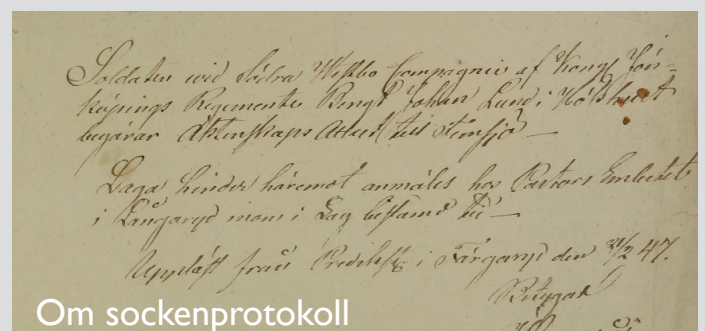 Soldaten wid Södra Westbo Compagnie af Kongl Jön-
köpings Regemente Bengt Johan Lund i
begärar Äktenskaps Attest till Femsjö —
Laga hinder häremot anmäles hos Pastors Embetet
i Långaryd inom i Lag bestämd tid —
Uppläst från Predikst: i Färgaryd den 21/2 47.
Betygar
Om sockenprotokoll